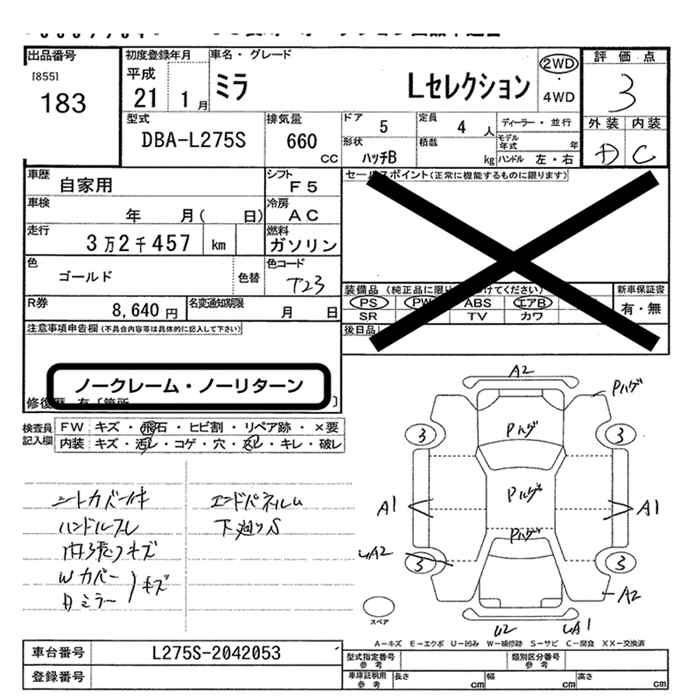 出品番号
[855]
183
初度登録年月
平成
21 1月
車名・グレード
ミラ Lセレクション
2WD
・
4WD
評価点
3
外装 内装
D C
型式
DBA-L275S
排気量
660 CC
ドア
5
定員
4 人
ディーラー・並行
形状
ハッチB
積載
kg
モデル年式 年
ハンドル 左・右
車歴
自家用
シフト
F5
セールスポイント(正常に機能するものに限ります)
車検
年 月( 日)
冷房
AC
走行
3万2千457 km
燃料
ガソリン
色
ゴールド
色替
色コード
T23
装備品(純正品に限り
けてください)
新車保証書
PS PW ABS エアB
有・無
SR TV カワ
後日品
R券
8,640円
名変通知期限
月 日
注意事項申告欄(不具合内容等は具体的に記入して下さい)
ノークレーム・ノーリターン
修復歴 有〔箇所 〕
検査員
記入欄
FW キズ・飛石・ヒビ割・リペア跡・×要
内装 キズ・汚レ・コゲ・穴・スレ・キレ・破レ
シートカバー付
ハンドルスレ
内張りキズ
Wカバー
Bミラー
キズ
エンドパネルム
下廻りS
A2
Pハゲ
Pハゲ
Pハゲ
Pハゲ
3
3
A1
A1
UA2
3
3
A2
U2
UA1
スペア
A-キズ E-エクボ U-凹み W-補修跡 S-サビ C-腐食 XX-交換済
車台番号
L275S-2042053
登録番号
型式指定番号
参考
類別区分番号
参考
車庫証明用
参考
長さ cm
幅 cm
高さ cm